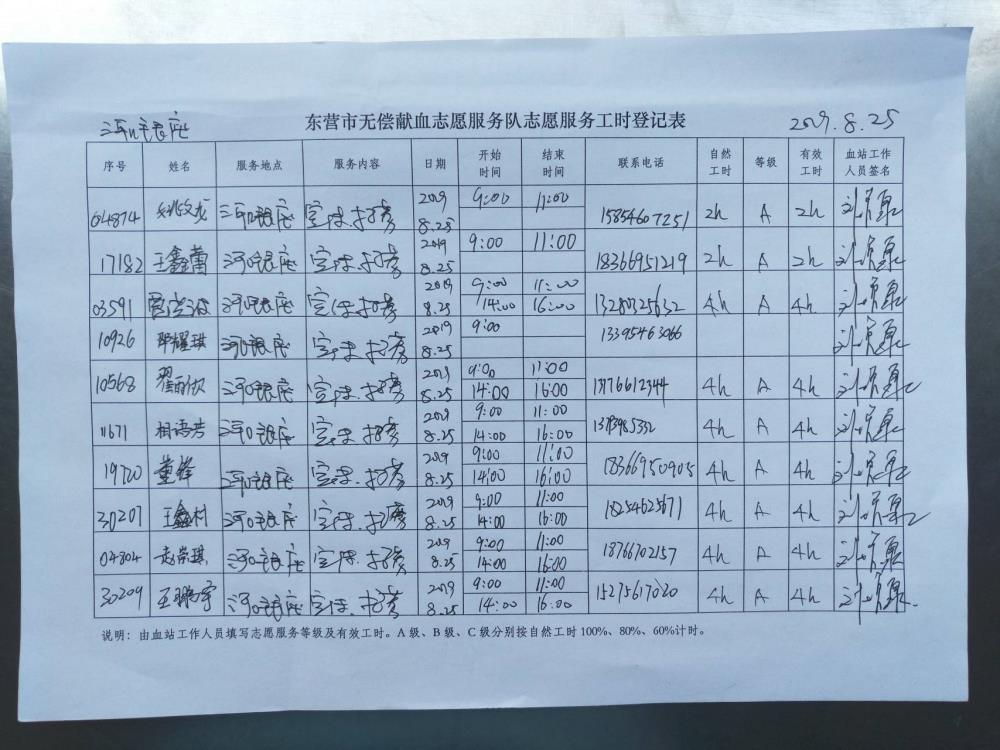 河口银座 东营市无偿献血志愿服务队志愿服务工时登记表 2019.8.25
序号 姓名 服务地点 服务内容 日期 开始时间 结束时间 联系电话 自然工时 等级 有效工时 血站工作人员签名
04874 河口银座 宣传.招募 2019 8.25 9:00 11:00 15854607251 2h A 2h
17182 王鑫蕾 河口银座 宣传.招募 2019 8.25 9:00 11:00 18366951219 2h A 2h
03591 河口银座 宣传.招募 2019 8.25 9:00 11:00 14:00 16:00 13280325632 4h A 4h
10926 河口银座 宣传.招募 2019 8.25 9:00 13395463066
10568 河口银座 宣传.招募 2019 8.25 9:00 11:00 14:00 16:00 13176612344 4h A 4h
11671 相语芳 河口银座 宣传.招募 2019 8.25 9:00 11:00 14:00 16:00 4h A 4h
19720 董锋 河口银座 宣传.招募 2019 8.25 9:00 11:00 14:00 16:00 18366950905 4h A 4h
30207 王鑫村 河口银座 宣传.招募 2019 8.25 9:00 11:00 14:00 16:00 18254625671 4h A 4h
04804 赵崇琪 河口银座 宣传.招募 2019 8.25 9:00 11:00 14:00 16:00 18766702157 4h A 4h
30209 王鹏宇 河口银座 宣传.招募 2019 8.25 9:00 11:00 14:00 16:00 15275617020 4h A 4h
说明：由血站工作人员填写志愿服务等级及有效工时。A级、B级、C级分别按自然工时100%、80%、60%计时。